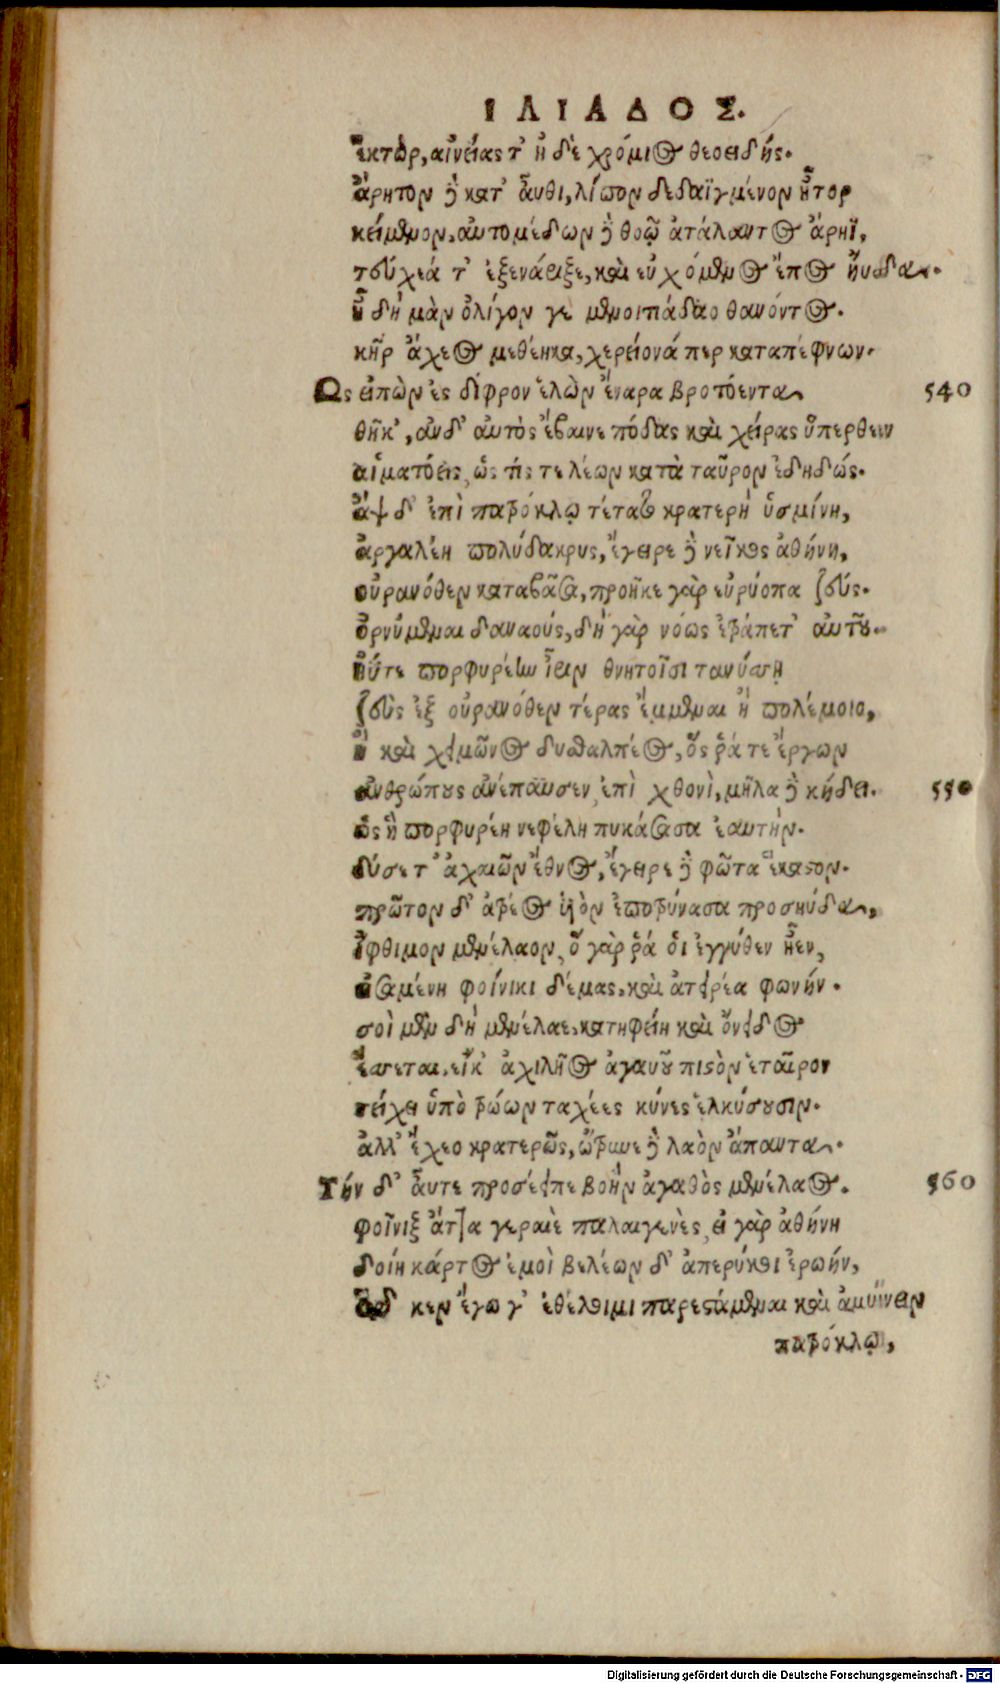 ΙΛΙΑΔΟΣ.
ἕκτωρ, αἰνείας τ' ἠδὲ χρόμιος θεοειδής.
ἄρητον δὲ κατ' αὖθι, λίπον δεδαϊγμένον ἦτορ
κείμενον. αὐτομέδων δὲ θοῷ ἀτάλαντος ἄρηϊ,
τεύχεά τ' ἐξενάριξε, καὶ εὐχόμενος ἔπος ηὔδα.
ἦ δὴ μὰν ὀλίγον γε μενοιτιάδαο θανόντος.
κῆρ ἄχεος μεθέηκα, χερείονά περ καταπέφνων.
Ως εἰπὼν ἐς δίφρον ἑλὼν ἔναρα βροτόεντα 540
θῆκ', ἂν δ' αὐτὸς ἔβαινε πόδας καὶ χεῖρας ὕπερθεν
αἱματόεις, ὥς τίς τε λέων κατὰ ταῦρον ἐδηδώς.
ἂψ δ' ἐπὶ πατρόκλῳ τέτατο κρατερὴ ὑσμίνη,
ἀργαλέη πολύδακρυς, ἔγειρε δὲ νεῖκος ἀθήνη,
οὐρανόθεν καταβᾶσα, προῆκε γὰρ εὐρύοπα ζεύς.
ὀρνύμεναι δαναούς, δὴ γὰρ νόος ἐτράπετ' αὐτοῦ.
ἠΰτε πορφυρέην ἶριν θνητοῖσι τανύσσῃ
ζεὺς ἐξ οὐρανόθεν τέρας ἔμμεναι ἢ πολέμοιο,
ἢ καὶ χειμῶνος δυσθαλπέος, ὅς ῥά τε ἔργων
ἀνθρώπους ἀνέπαυσεν ἐπὶ χθονὶ, μῆλα δὲ κήδει. 550
ὣς ἡ πορφυρέη νεφέλη πυκάσασα ἑαυτὴν.
δύσετ' ἀχαιῶν ἔθνος, ἔγειρε δὲ φῶτα ἕκαστον.
πρῶτον δ' ἀτρέος υἱὸν ἐποτρύνασα προσηύδα,
ἴφθιμον μενέλαον, ὃ γὰρ ῥά οἱ ἐγγύθεν ἦεν,
εἰσαμένη φοίνικι δέμας, καὶ ἀτειρέα φωνήν.
σοὶ μὲν δὴ μενέλαε, κατηφείη καὶ ὄνειδος
ἔσσεται, εἴκ' ἀχιλῆος ἀγαυοῦ πιστὸν ἑταῖρον
τείχει ὑπὸ τρώων ταχέες κύνες ἑλκύσουσιν.
ἀλλ' ἔχεο κρατερῶς, ὤτρυνε δὲ λαὸν ἅπαντα.
Τήν δ' αὖτε προσέειπε βοὴν ἀγαθὸς μενέλαος. 560
φοῖνιξ ἄττα γεραιὲ παλαιγενὲς, εἰ γὰρ ἀθήνη
δοίη κάρτος ἐμοὶ βελέων δ' ἀπερύκοι ἐρωήν,
κεν ἔγωγ' ἐθέλοιμι παρεστάμεναι καὶ ἀμύνειν
πατρόκλῳ,
Digitalisierung gefördert durch die Deutsche Forschungsgemeinschaft - DFG